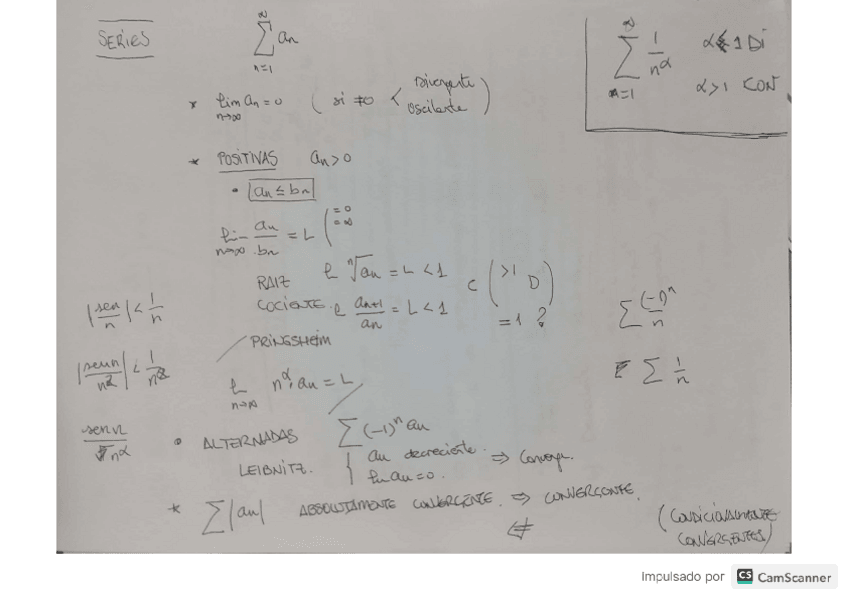 SERIES
∞
∑ an
n=1
∞
∑ 1/n^α
n=1
α≤1 Di
α>1 CON
* lim an = 0 ( si ≠0 < Divergente
n→∞
Oscilante )
* POSITIVAS an>0
• an ≤ bn
lim an/bn = L ( =0
n→∞
=∞
RAIZ ℓ ⁿ√an = L <1
C ( >1 D )
COCIENTE ℓ an+1/an = L <1
=1 ?
PRINGSHEIM
ℓ n^α · an = L
n→∞
|sen/n| < 1/n
|senn/n²| < 1/n²
senn/n^α
∑ (-1)^n/n
∑ 1/n
• ALTERNADAS ∑ (-1)^n an
LEIBNITZ. { an decreciente. ⇒ Converge.
ℓ an = 0.
* ∑ |an| ABSOLUTAMENTE CONVERGENTE. ⇒ CONVERGENTE.
⇍
(CONDICIONALMENTE
CONVERGENTES)
Impulsado por CS CamScanner